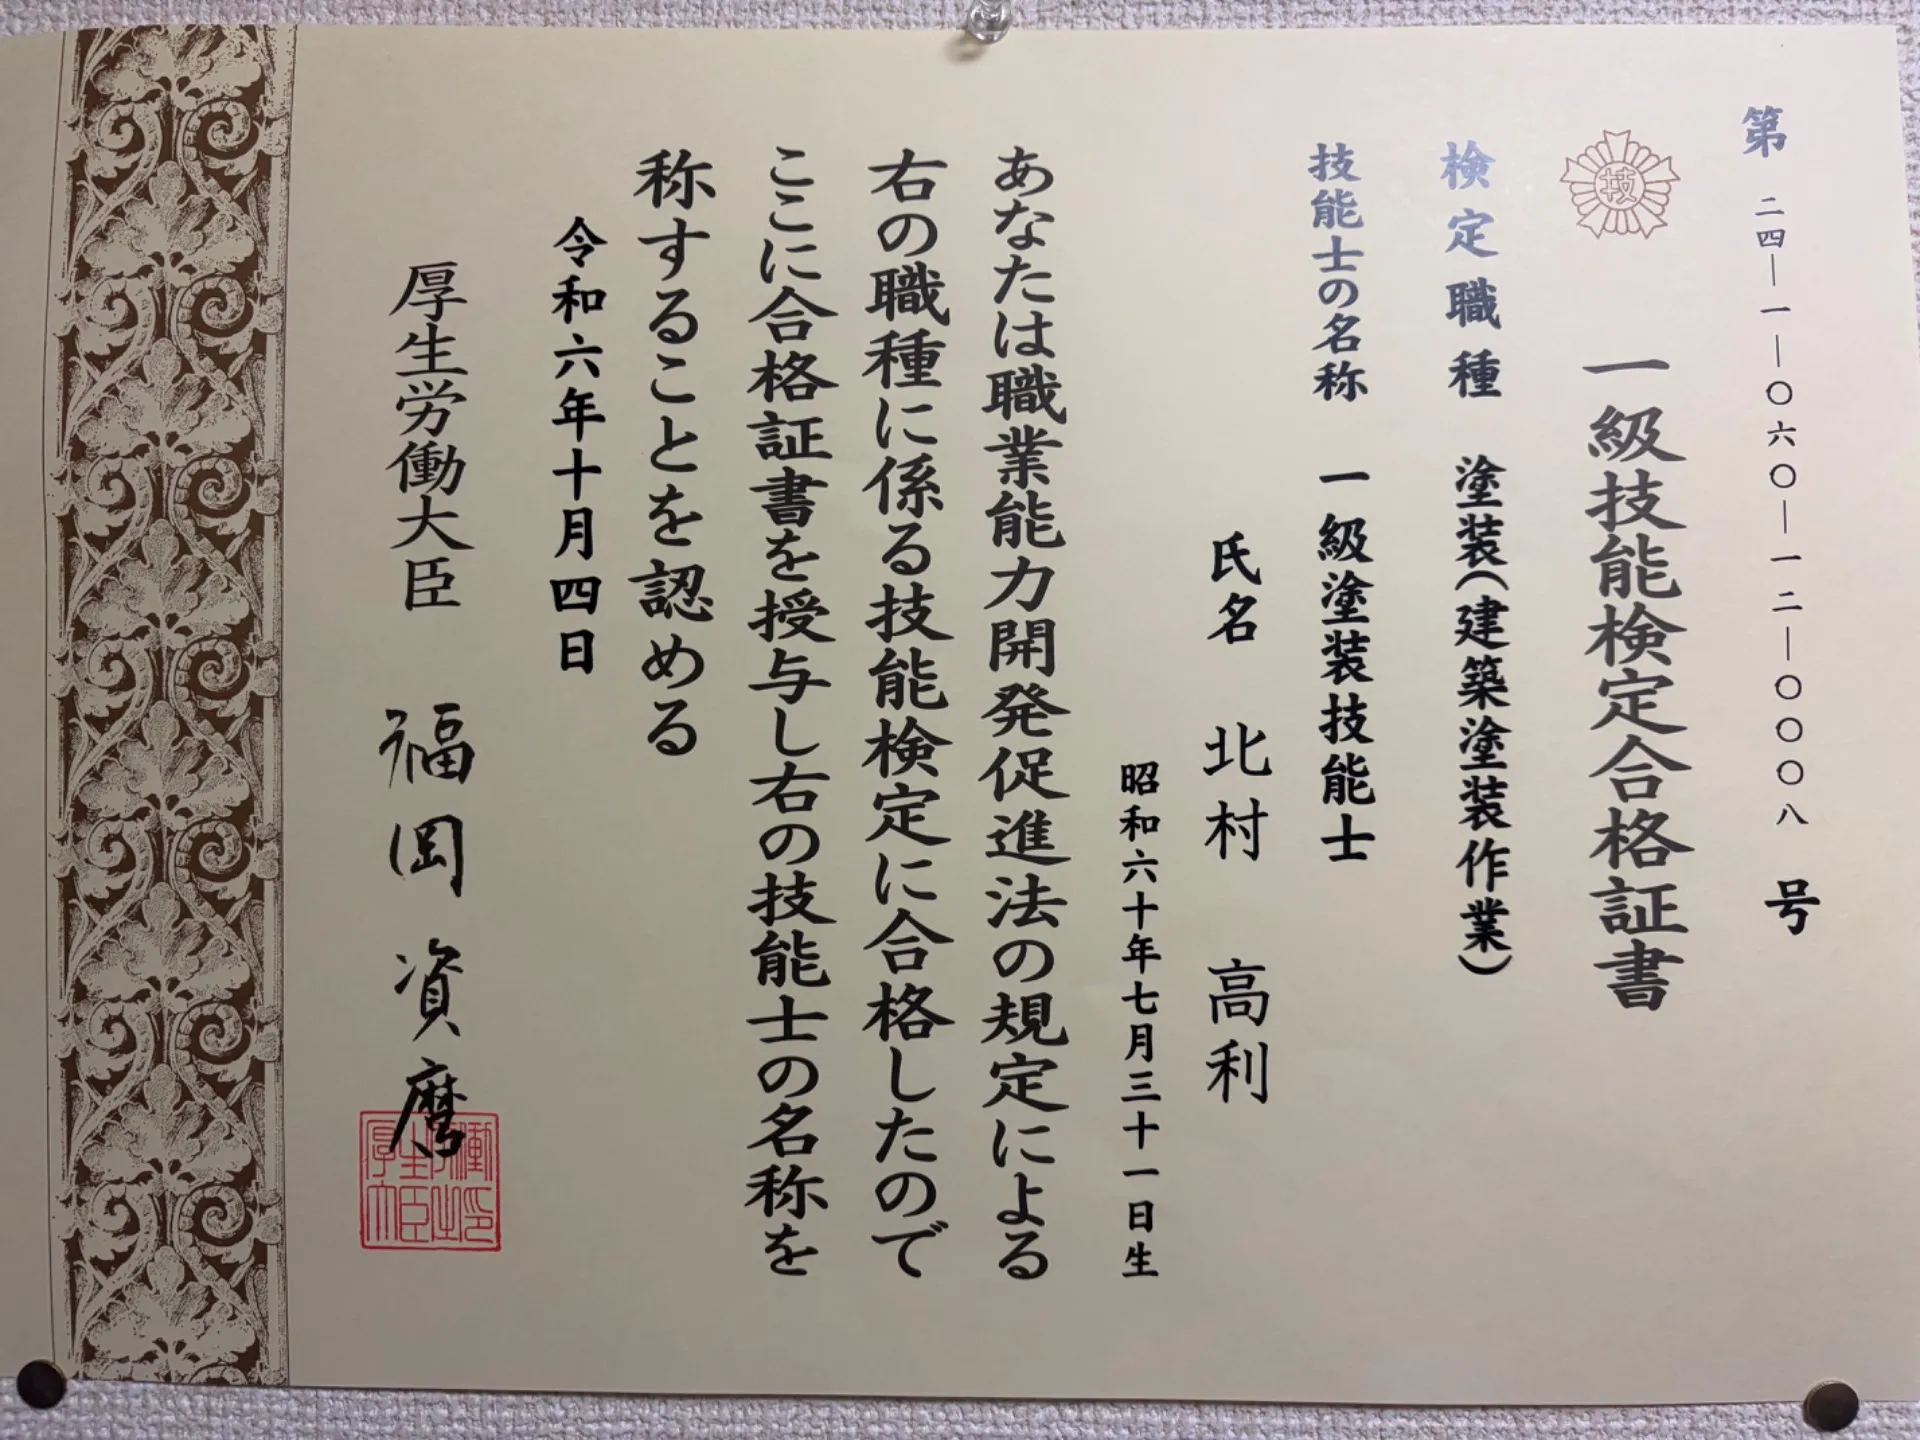 第 二四―一―〇六〇―一二―〇〇〇八 号
技
一級技能検定合格証書
検定職種 塗装(建築塗装作業)
技能士の名称 一級塗装技能士
氏名 北村 高利
昭和六十年七月三十一日生
あなたは職業能力開発促進法の規定による
右の職種に係る技能検定に合格したので
ここに合格証書を授与し右の技能士の名称を
称することを認める
令和六年十月四日
厚生労働大臣 福岡資麿
厚生労働大臣之印